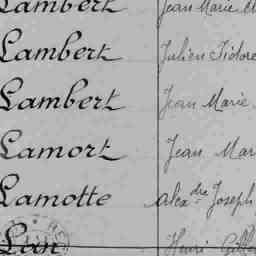 Lambert Jean Marie
Lambert Julien Isidore
Lambert Jean Marie
Lamort Jean Mar
Lamotte alexdre Joseph
Lan Henri